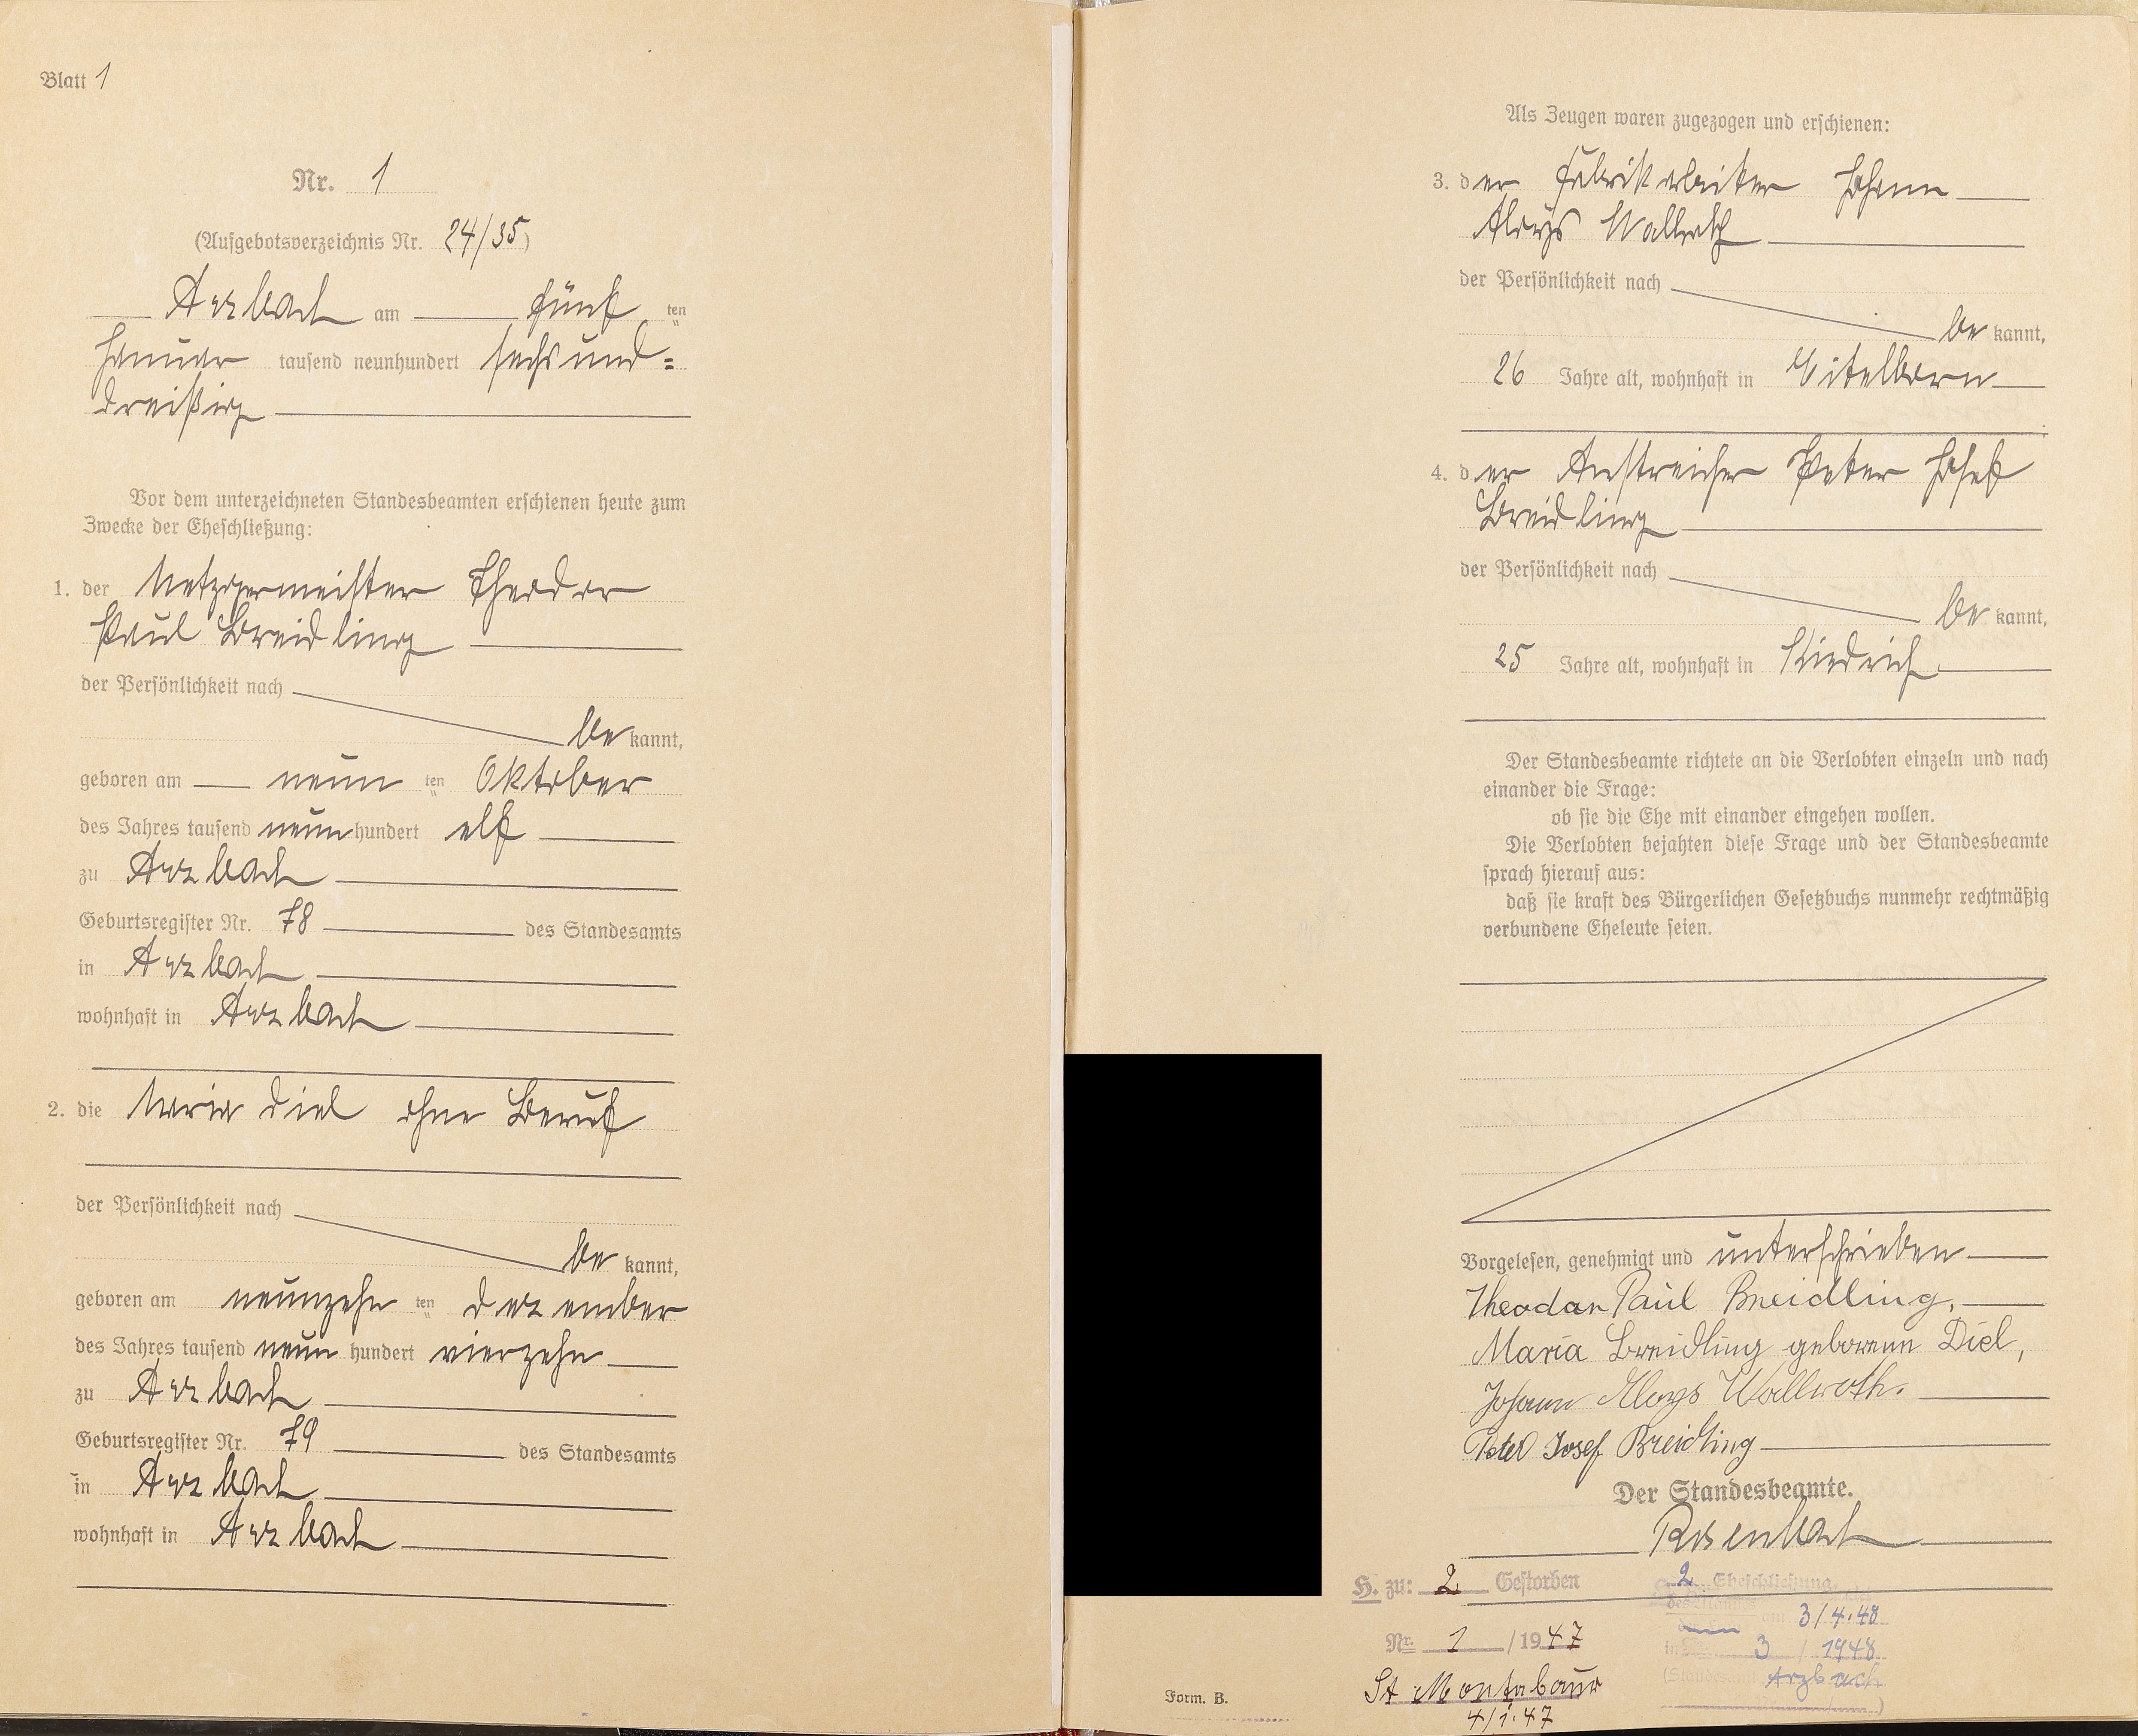 Blatt 1
Nr. 1
(Aufgebotsverzeichnis Nr. 24/35)
Arzbach am fünf ten
Januar tausend neunhundert sechsund=
dreißig
Vor dem unterzeichneten Standesbeamten erschienen heute zum
Zwecke der Eheschließung:
1. der Metzgermeister Theodor
Paul Breidling
der Persönlichkeit nach
be kannt,
geboren am neun ten Oktober
des Jahres tausend neun hundert elf
zu Arzbach
Geburtsregister Nr. 78 des Standesamts
in Arzbach
wohnhaft in Arzbach
2. die Maria Diel ohne Beruf
der Persönlichkeit nach
be kannt,
geboren am neunzehn ten Dezember
des Jahres tausend neun hundert vierzehn
zu Arzbach
Geburtsregister Nr. 79 des Standesamts
in Arzbach
wohnhaft in Arzbach
Als Zeugen waren zugezogen und erschienen:
3. der Fabrikarbeiter Johann
Aloys Wallroth
der Persönlichkeit nach
be kannt,
26 Jahre alt, wohnhaft in Eitelborn
4. der Anstreicher Peter Josef
Breidling
der Persönlichkeit nach
be kannt,
25 Jahre alt, wohnhaft in Kiedrich
Der Standesbeamte richtete an die Verlobten einzeln und nach
einander die Frage:
ob sie die Ehe mit einander eingehen wollen.
Die Verlobten bejahten diese Frage und der Standesbeamte
sprach hierauf aus:
daß sie kraft des Bürgerlichen Gesetzbuchs nunmehr rechtmäßig
verbundene Eheleute seien.
Vorgelesen, genehmigt und unterschrieben
Theodor Paul Breidling,
Maria Breidling geborene Diel,
Johann Aloys Wallroth.
Peter Josef Breidling
Der Standesbeamte.
Rosenbach
H. zu: 2 Gestorben
Nr. 1 /1947
St Montabaur
4/1.47
2. Eheschliessung
am 3/4.48
3 / 1948
(Standesamt Arzbach
)
Form. B.